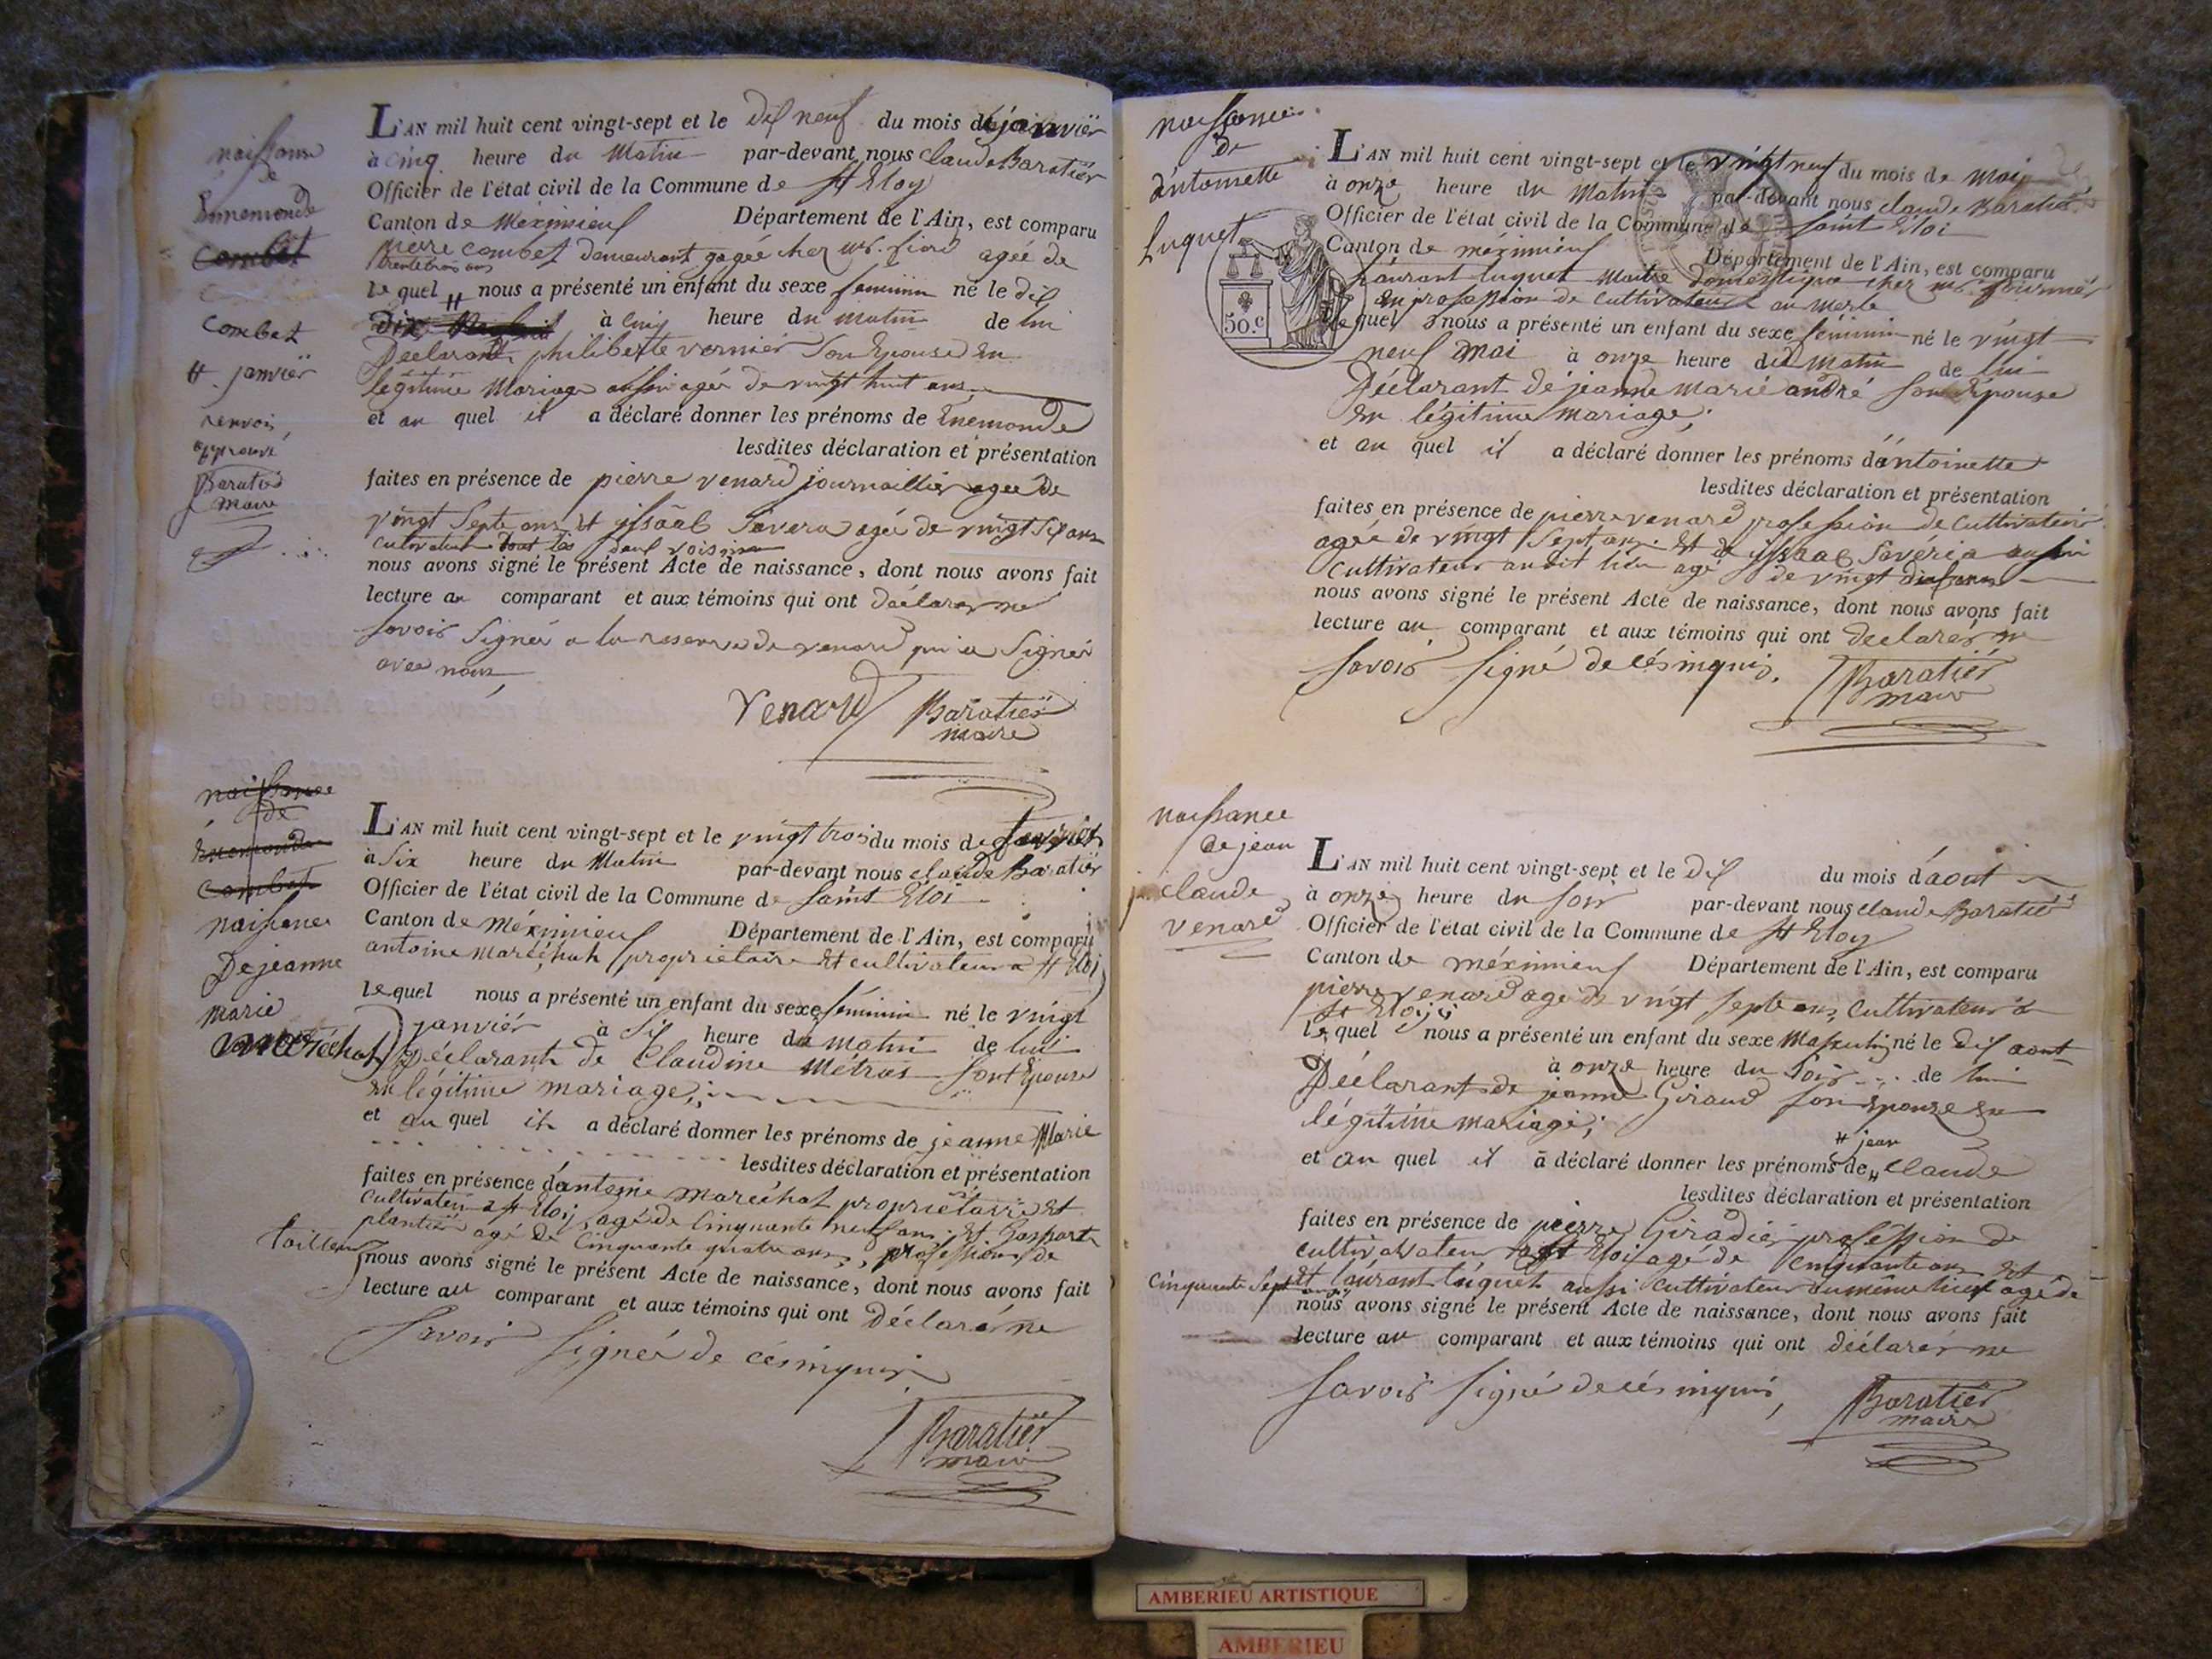 naissance
de
Ennemonde
Combet
Combet
H janvier
renvoi
approuvé
Baratier
maire
L'AN mil huit cent vingt-sept et le dix neuf du mois de janvier
à cinq heure du Matin par-devant nous Claude Baratier
Officier de l'état civil de la Commune de St Eloy
Canton de Meximieux Département de l'Ain, est comparu
pierre combet demeurant gagée chez mr. agée de
trente trois ans
le quel H nous a présenté un enfant du sexe feminin né le dix
dix à cinq heure du matin de lui
Déclarant philiberte vernier Son Epouse En
légitime Mariage aussi agée de vingt huit ans
et au quel il a déclaré donner les prénoms de Enemonde
lesdites déclaration et présentation
faites en présence de pierre venard journaillier agee De
vingt Septe ans et yssaac Savera agée de vingt Six ans
Cultivateur tout les deux voisin
nous avons signé le présent Acte de naissance, dont nous avons fait
lecture au comparant et aux témoins qui ont déclarer ne
Savoir Signer a la reserve de venard qui a Signer
avec nous
Venard Baratier
maire
naissance
de
Enemonde
Combet
naissance
De jeanne
marie
maréchal
L'AN mil huit cent vingt-sept et le vingt trois du mois de
à Six heure du Matin par-devant nous claude Baratier
Officier de l'état civil de la Commune de Saint Eloi
Canton de Méximieux Département de l'Ain, est comparu
antoine maréchal propriétaire Et cultivateur a St Eloi
le quel nous a présenté un enfant du sexe féminin né le vingt
janvier à Six heure du matin de lui
Déclarant de Claudine Métras Son Epouse
En légitime mariage;
et au quel il a déclaré donner les prénoms de jeanne Marie
lesdites déclaration et présentation
faites en présence d'antoine maréchal propriétaire Et
Cultivateur a St Eloi, agé de Cinquante neuf ans Et Gaspart
plantier agé de Cinquante quatre ans, profession de
tailleur
nous avons signé le présent Acte de naissance, dont nous avons fait
lecture au comparant et aux témoins qui ont Déclarér ne
Savoir Signér de cés inquis
Baratier
maire
naissance
De
d'antoinette
Luquet
50.c
L'AN mil huit cent vingt-sept et le vingt neuf du mois de mai
à onze heure du Matin par-devant nous claude Baratier
Officier de l'état civil de la Commune de Saint Eloi
Canton de meximieux Département de l'Ain, est comparu
Laurant luquet Maitre Domestique chez mr. fournier
En profession de Cultivateur au Merle
le quel nous a présenté un enfant du sexe féminin né le vingt
neuf mai à onze heure du Matin de lui
Déclarant de jeanne marie andré Son Epouse
En légitime mariage;
et au quel il a déclaré donner les prénoms d'antoinette
lesdites déclaration et présentation
faites en présence de pierre venard profession de Cultivateur
agée de vingt Sept ans. Et de yssaac Savéria aussi
Cultivateur audit lieu agé de vingt
nous avons signé le présent Acte de naissance, dont nous avons fait
lecture au comparant et aux témoins qui ont declarér ne
Savoir Signé de cés inquis,
Baratier
maire
naissance
de jean
claude
venard
L'AN mil huit cent vingt-sept et le dix du mois d'aout
à onze heure du soir par-devant nous claude Baratier
Officier de l'état civil de la Commune de St Eloy
Canton de méximieux Département de l'Ain, est comparu
pierre venard age de vingt Septe ans, Cultivateur a
St Eloy
le quel nous a présenté un enfant du sexe Masculin né le dix aout
à onze heure du Soir de lui
Déclarant de jeanne Giraud son Epouze En
légitime mariage;
H jean
et au quel il a déclaré donner les prénoms de H claude
lesdites déclaration et présentation
faites en présence de pierre Giradier proféssion de
cultivateur a St Eloi agé de Cinquante ans Et
Et laurant luquet aussi cultivateur du même lieu agé de
Cinquante Sept ans
nous avons signé le présent Acte de naissance, dont nous avons fait
lecture au comparant et aux témoins qui ont déclarér ne
Savoir Signé de cés inquis,
Baratier
maire
AMBERIEU ARTISTIQUE
AMBERIEU